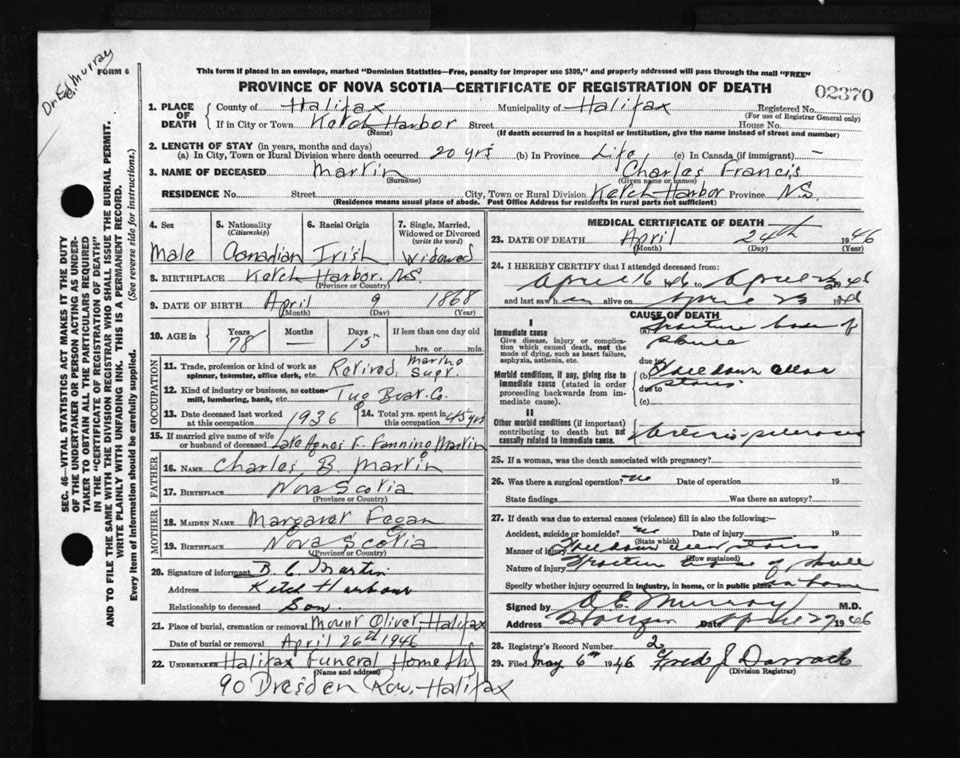 Dr. Ed. Murray
FORM 6
This form if placed in an envelope, marked "Dominion Statistics—Free, penalty for improper use $300," and properly addressed will pass through the mail "FREE"
PROVINCE OF NOVA SCOTIA—CERTIFICATE OF REGISTRATION OF DEATH
02370
SEC. 46—VITAL STATISTICS ACT MAKES IT THE DUTY
OF THE UNDERTAKER OR PERSON ACTING AS UNDER-
TAKER TO OBTAIN ALL THE PARTICULARS REQUIRED
IN THE "CERTIFICATE OF REGISTRATION OF DEATH"
AND TO FILE THE SAME WITH THE DIVISION REGISTRAR WHO SHALL ISSUE THE BURIAL PERMIT.
WRITE PLAINLY WITH UNFADING INK. THIS IS A PERMANENT RECORD.
Every item of information should be carefully supplied. (See reverse side for instructions.)
1. PLACE OF DEATH County of Halifax Municipality of Halifax Registered No.
(For use of Registrar General only)
If in City or Town Ketch Harbor Street House No.
(Name) (If death occurred in a hospital or institution, give the name instead of street and number)
2. LENGTH OF STAY (in years, months and days)
(a) In City, Town or Rural Division where death occurred 20 yrs (b) in Province Life (c) In Canada (if immigrant) —
3. NAME OF DECEASED Martin Charles Francis
(Surname) (Given name or names)
RESIDENCE No. Street City, Town or Rural Division Ketch Harbor Province N.S.
(Residence means usual place of abode. Post Office Address for residents in rural parts not sufficient)
4. Sex 5. Nationality (Citizenship) 6. Racial Origin 7. Single, Married, Widowed or Divorced (write the word)
Male Canadian Irish Widowed
8. BIRTHPLACE Ketch Harbor, N.S.
(Province or Country)
9. DATE OF BIRTH April 9 1868
(Month) (Day) (Year)
10. AGE in Years Months Days If less than one day old
78 — 15 hrs. or min.
OCCUPATION
11. Trade, profession or kind of work as spinner, teamster, office clerk, etc. Retired Marine Supr.
12. Kind of industry or business, as cotton-mill, lumbering, bank, etc. Tug Boat Co.
13. Date deceased last worked at this occupation 1936 14. Total yrs. spent in this occupation 45 yrs
15. If married give name of wife or husband of deceased Late Agnes F. Fanning Martin
FATHER
16. NAME Charles B. Martin
17. BIRTHPLACE Nova Scotia
(Province or Country)
MOTHER
18. MAIDEN NAME Margaret Fegan
19. BIRTHPLACE Nova Scotia
(Province or Country)
20. Signature of informant B. C. Martin
Address Ketch Harbour
Relationship to deceased Son
21. Place of burial, cremation or removal Mount Olivet, Halifax
Date of burial or removal April 26th 1946
22. UNDERTAKER Halifax Funeral Home
(Name and address)
90 Dresden Row - Halifax
MEDICAL CERTIFICATE OF DEATH
23. DATE OF DEATH April 24th 1946
(Month) (Day) (Year)
24. I HEREBY CERTIFY that I attended deceased from:
April 16 1946 to April 23 1946
and last saw h im alive on April 23 1946
CAUSE OF DEATH
I
Immediate cause (a) Fracture base of skull
Give disease, injury or complication which caused death, not the mode of dying, such as heart failure, asphyxia, asthenia, etc. due to
Morbid conditions, if any, giving rise to immediate cause (stated in order proceeding backwards from immediate cause). (b) Fell down stairs
due to
(c)
II
Other morbid conditions (if important) contributing to death but not causally related to immediate cause. Arterio-sclerosis
25. If a woman, was the death associated with pregnancy?
26. Was there a surgical operation? no Date of operation 19
State findings Was there an autopsy?
27. If death was due to external causes (violence) fill in also the following:—
Accident, suicide or homicide? Date of injury 19
(State which)
Manner of injury Fell down stairs
(How sustained)
Nature of injury Fracture base of skull
Specify whether injury occurred in industry, in home, or in public place home
Signed by Murray M.D.
Address Date April 27 1946
28. Registrar's Record Number 2
29. Filed May 6th 1946 Fred J. Darrach
(Division Registrar)